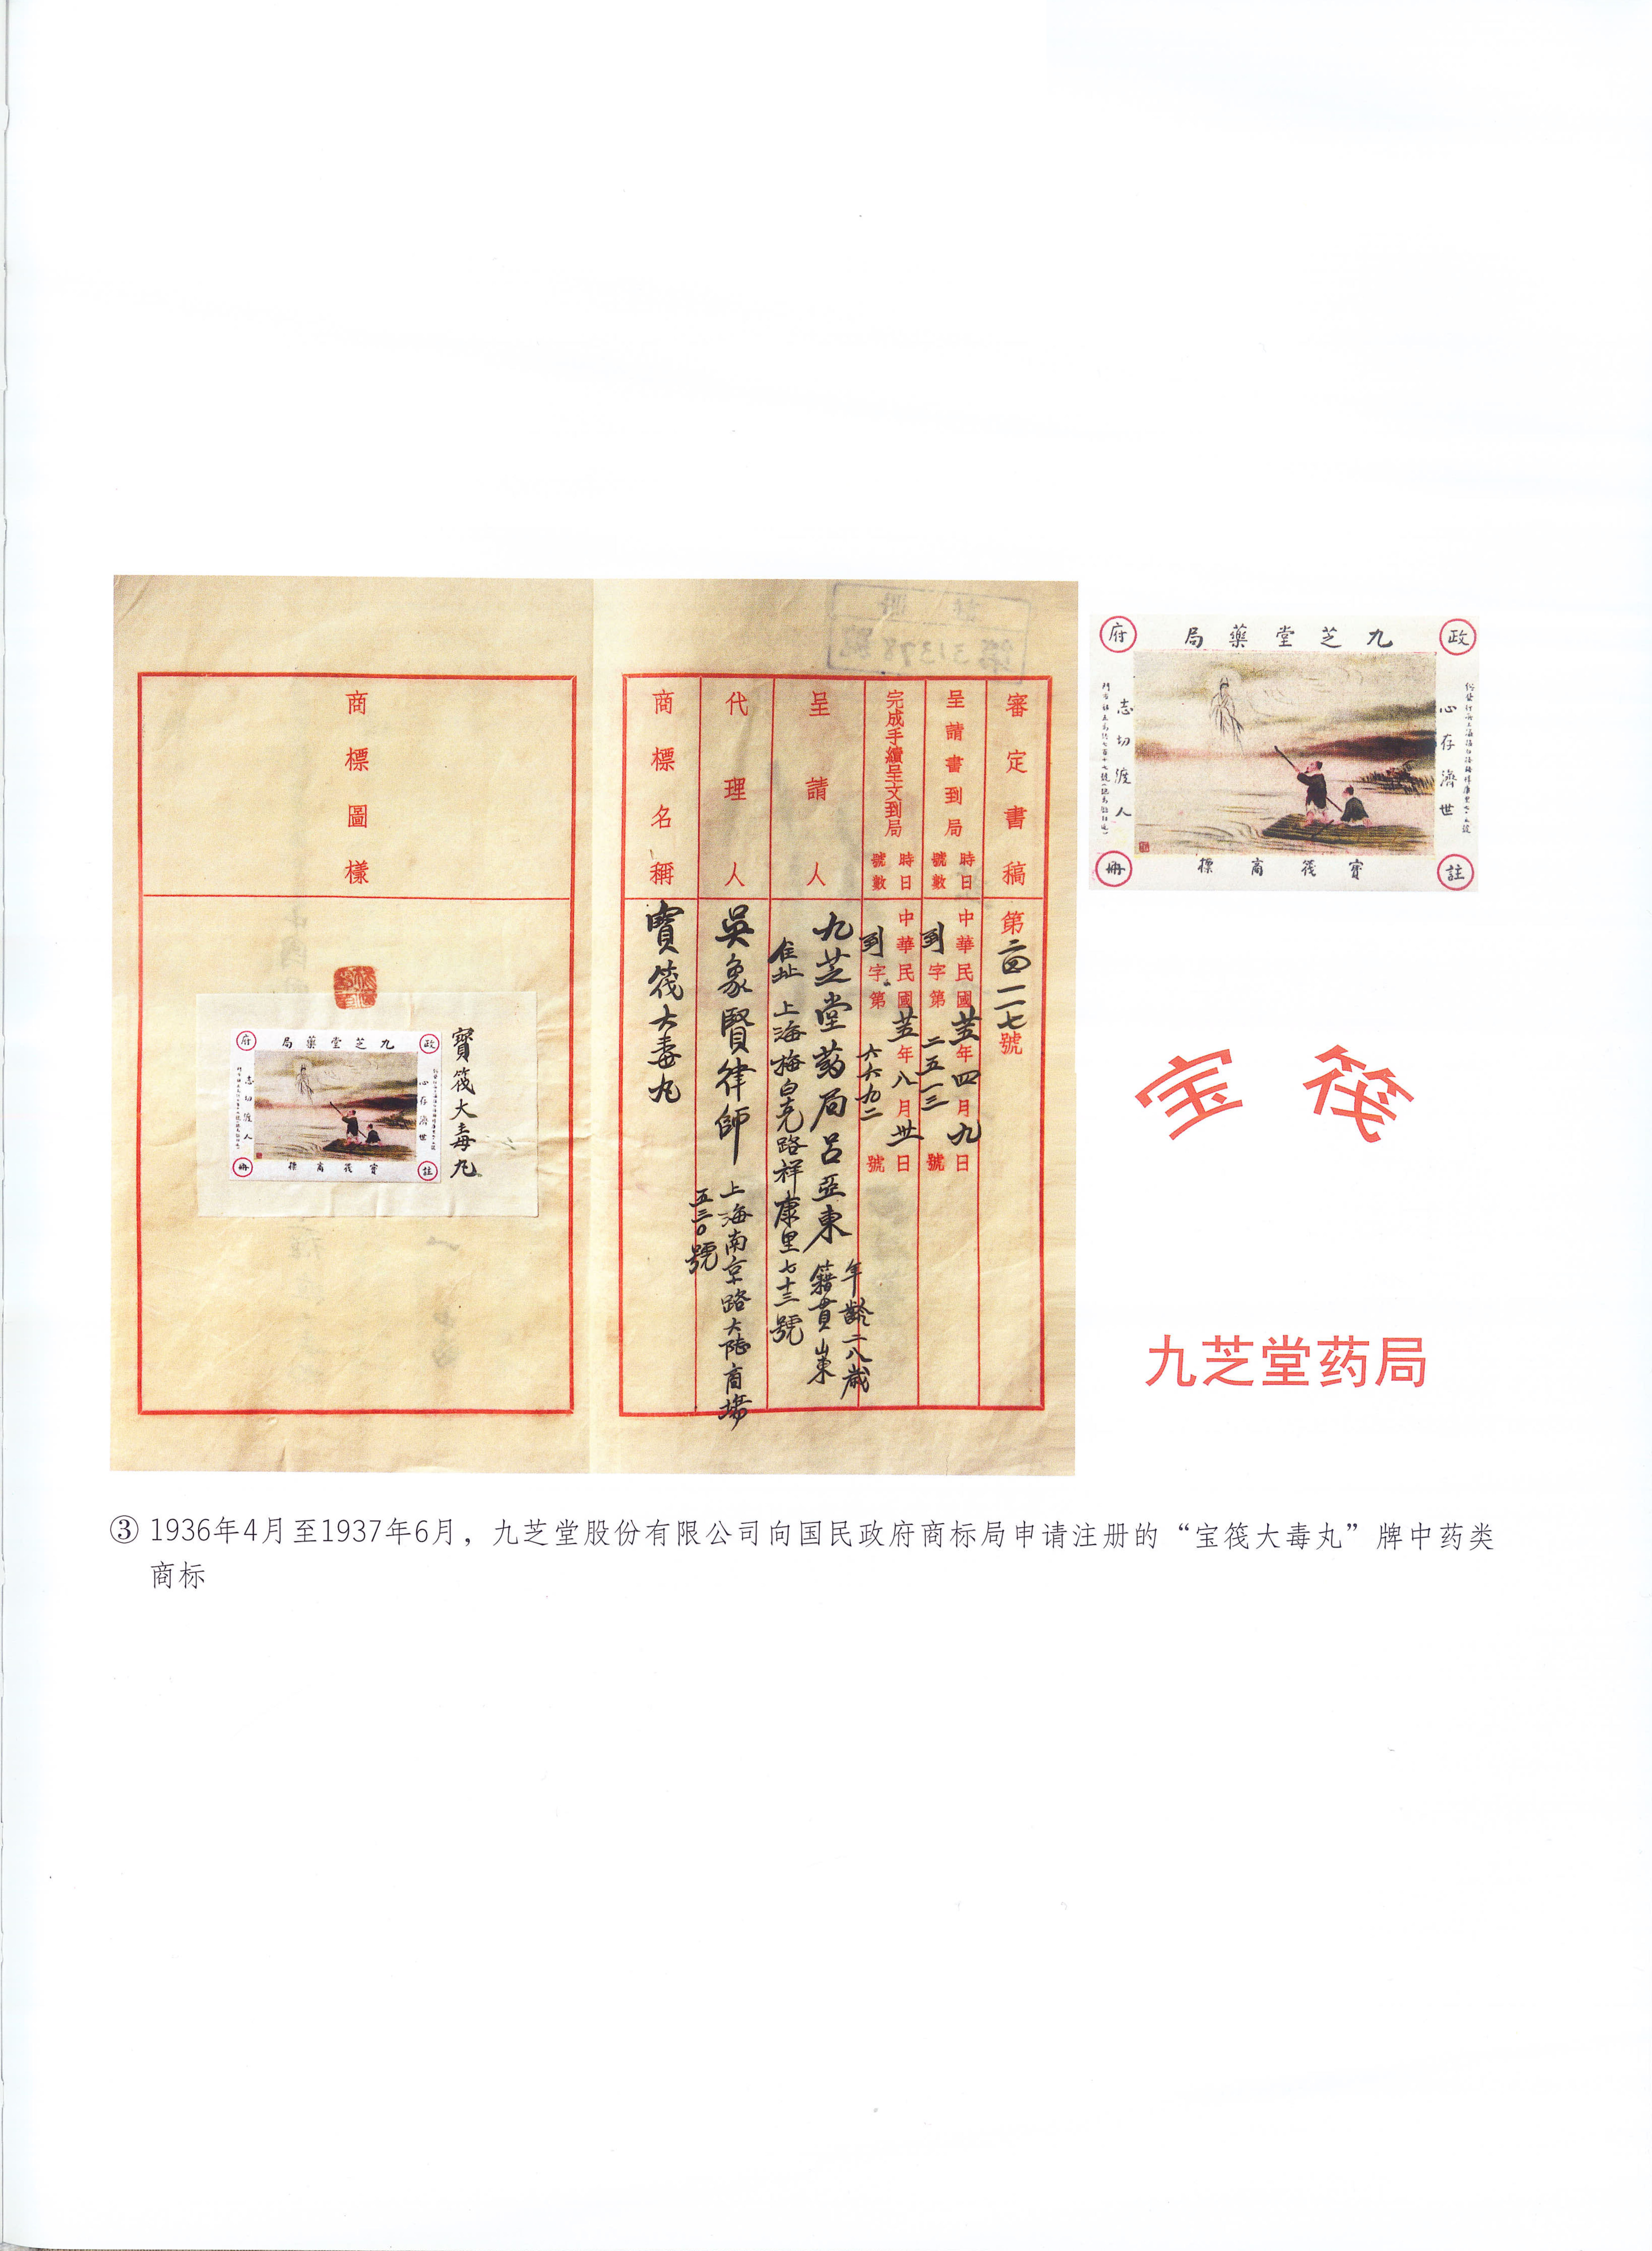 註冊
第31378號
審定書稿
第二四一一七號
呈請書到局
時日
號數
中華民國廿五年四月九日
到字第二五一三號
完成手續呈文到局
時日
號數
中華民國廿五年八月卅日
到字第六六九二號
呈請人
九芝堂药局呂亞東
年齡二八歲
籍貫山東
住址 上海梅白克路祥康里七十三號
代理人
吳象賢律師
上海南京路大陸商場
五三〇號
商標名稱
寶筏大毒丸
商標圖樣
寶筏大毒丸
政府註冊
九芝堂藥局
心存濟世
志切渡人
寶筏商標
政府註冊
九芝堂藥局
心存濟世
志切渡人
寶筏商標
宝筏
九芝堂药局
③ 1936年4月至1937年6月，九芝堂股份有限公司向国民政府商标局申请注册的“宝筏大毒丸”牌中药类
商标